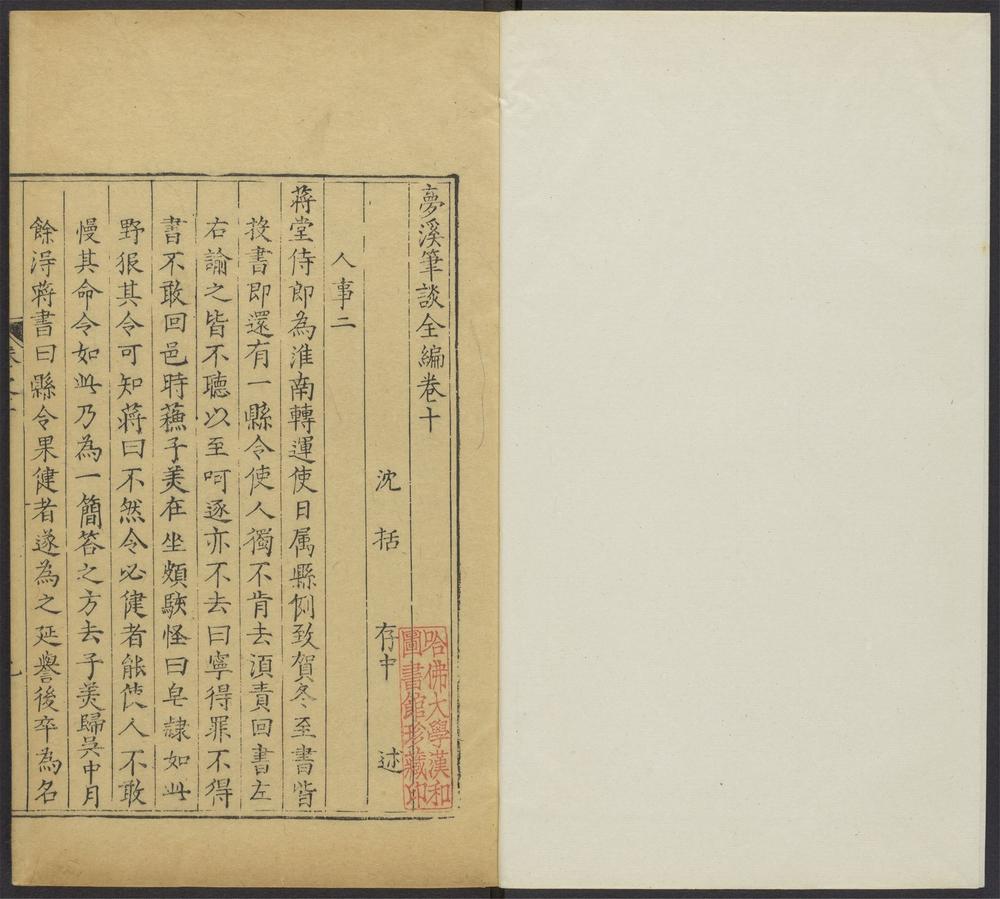 夢溪筆談全編卷十
沈括 存中 述
人事二
蔣堂侍郎為淮南轉運使日属縣例致賀冬至書皆
投書即還有一縣令使人獨不肯去湏責回書左
右諭之皆不聽以至呵逐亦不去曰寧得罪不得
書不敢回邑時蘓子美在坐頗駭怪曰皂隸如此
野狠其令可知蔣曰不然令必健者能使人不敢
慢其命令如此乃為一簡答之方去子美歸吳中月
餘淂蔣書曰縣令果健者遂為之延譽後卒為名
哈佛大學漢和
圖書館珍藏印